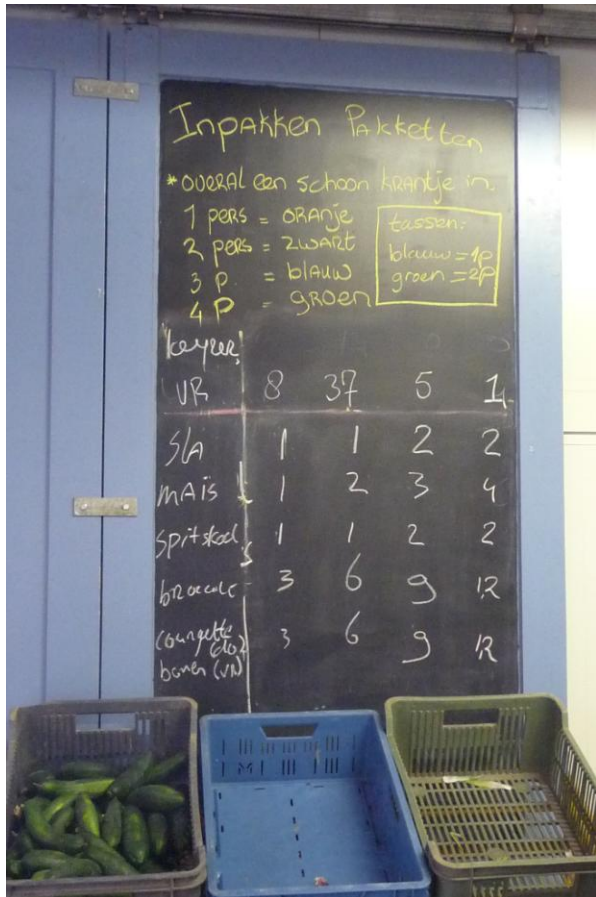 Inpakken Pakketten
* overal een schoon krantje in.
1 pers = oranje
2 pers = zwart
3 p. = blauw
4 p = groen
tassen:
blauw = 1p
groen = 2p
keyzer
VR 8 37 5 1
Sla 1 1 2 2
mais 1 2 3 4
spitskool 1 1 2 2
broccoli 3 6 9 12
courgette (do) 3 6 9 12
bonen (VR)